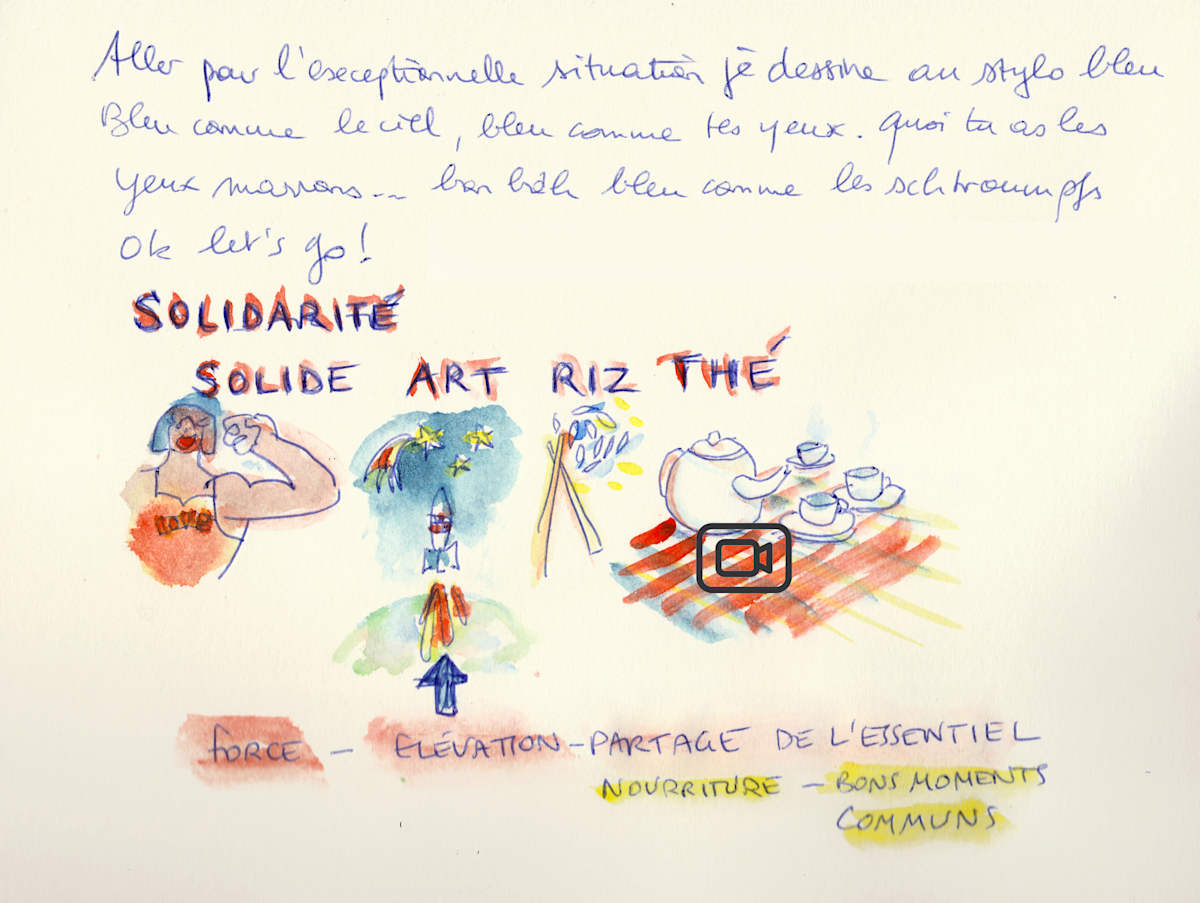 Aller pour l'exceptionnelle situation je dessine au stylo bleu
Bleu comme le ciel, bleu comme tes yeux. Quoi tu as les
yeux marrons... bon bah bleu comme les schtroumpfs
Ok let's go!
SOLIDARITÉ
SOLIDE ART RIZ THÉ
FORCE - ELÉVATION - PARTAGE DE L'ESSENTIEL
NOURRITURE - BONS MOMENTS
COMMUNS